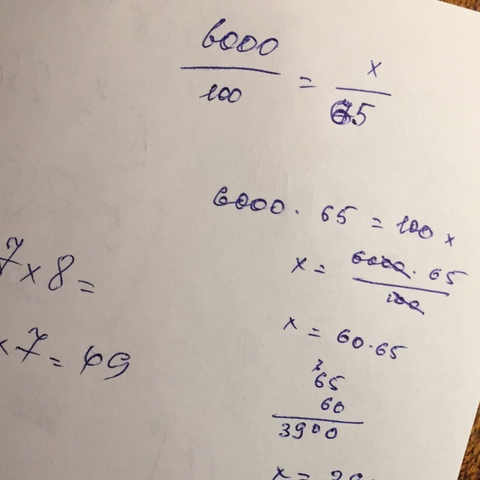 6000
100
=
x
65
6000 · 65 = 100 x
x = 6000 · 65
100
x = 60 · 65
65
60
3900
x =
7 x 8 =
x 7 = 49